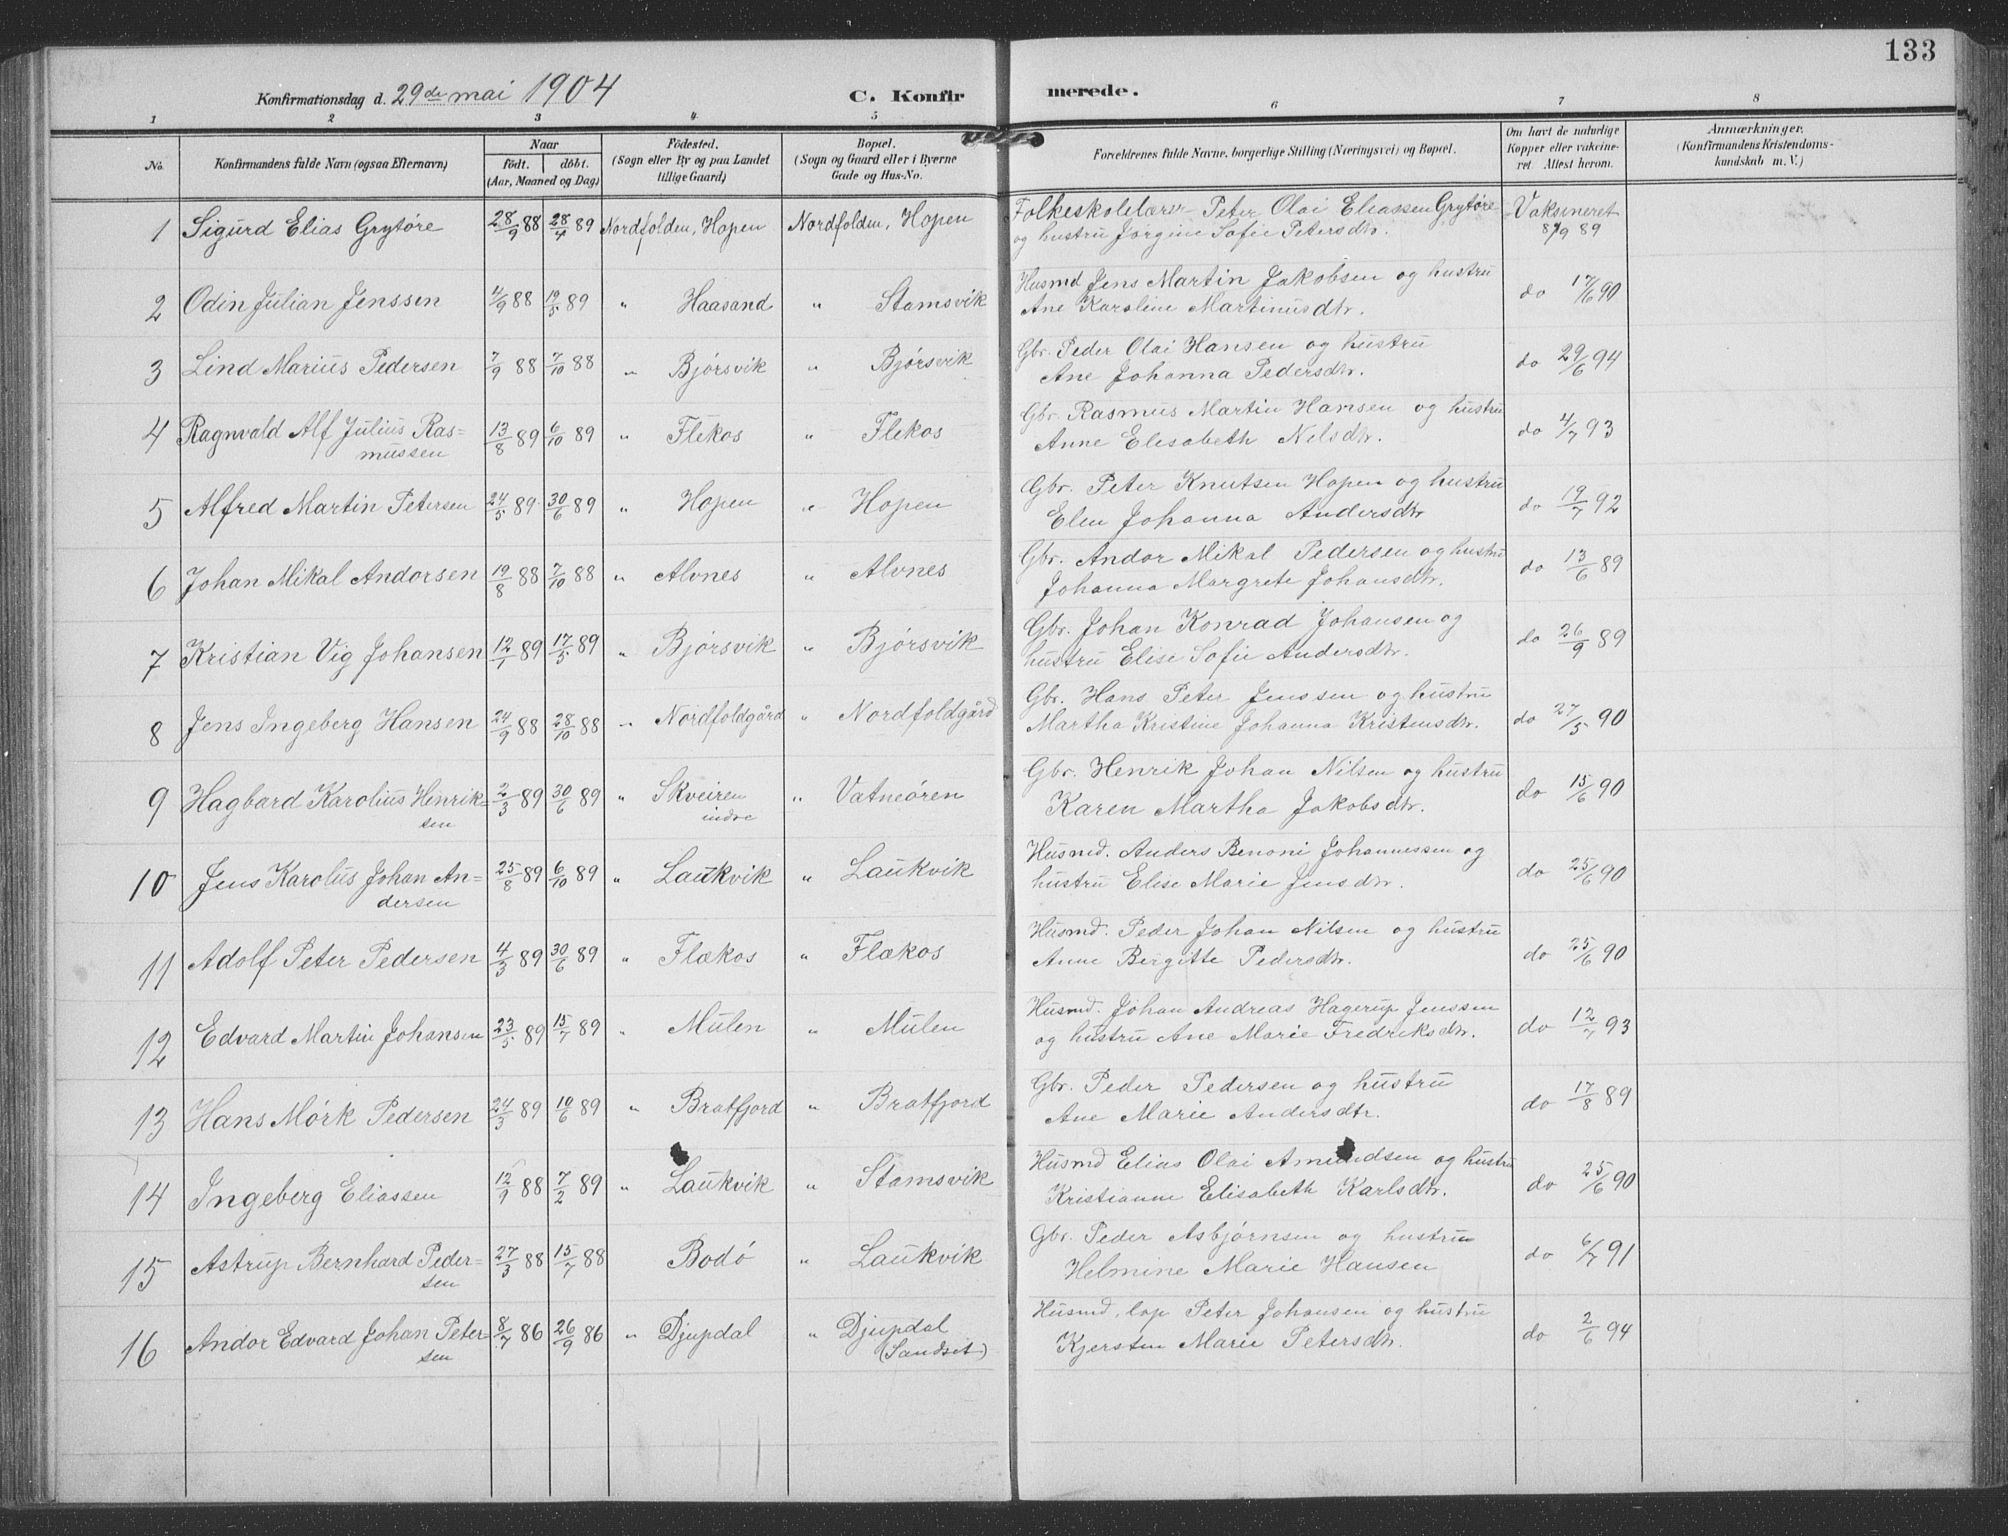 133
Konfirmationsdag d. 29de mai 1904 C. Konfir merede.
1 2 3 4 5 6 7 8
No. Konfirmandens fulde Navn (ogsaa Efternavn) Naar født. døbt. (Aar, Maaned og Dag) Fødested. (Sogn eller By og paa Landet tillige Gaard) Bopæl. (Sogn og Gaard eller i Byerne Gade og Hus-No. Forældrenes fulde Navne, borgerlige Stilling (Næringsvei) og Bopæl. Om havt de naturlige Kopper eller vakcineret. Attest herom. Anmærkninger. (Konfirmandens Kristendomskundskab m. V.)
1 Sigurd Elias Grytøre 28/9 88 28/4 89 Nordfolden, Hopen Nordfolden, Hopen Folkeskolelærer Peter Olai Eliassen Grytøre Vaksineret
og hustru Jørgine Sofie Petersdtr. 89
2 Odin Julian Jenssen 4/9 88 19/5 89 " Haasand " Stamsvik Husmd Jens Martin Jakobsen og hustru do 17/6 90
Ane Karoline Martinusdtr.
3 Lind Marius Pedersen 7/9 88 7/10 88 " Bjørsvik " Bjørsvik Gbr. Peder Olai Hansen og hustru do 29/6 94
Ane Johanna Pedersdtr.
4 Ragnvald Alf Julius Ras= 13/8 89 6/10 89 " Flekos " Flekos Gbr. Rasmus Martin Hansen og hustru do 4/7 93
mussen Anne Elisabeth Nilsdtr.
5 Alfred Martin Petersen 24/5 89 30/6 89 " Hopen " Hopen Gbr. Peter Knutsen Hopen og hustru do 19/7 92
Elen Johanna Andersdtr
6 Johan Mikal Andorsen 19/8 88 7/10 88 " Alvnes " Alvnes Gbr. Andor Mikal Pedersen og hustru do 13/6 89
Johanna Margrete Johansdtr.
7 Kristian Vig Johansen 12/1 89 17/5 89 " Bjørsvik " Bjørsvik Gbr. Johan Konrad Johansen og do 26/9 89
hustru Elise Sofie Andersdtr.
8 Jens Ingeberg Hansen 24/9 88 28/10 88 " Nordfoldgård " Nordfoldgård Gbr. Hans Peter Jenssen og hustru do 27/5 90
Martha Kristine Johanna Kristensdtr.
9 Hagbard Karolius Henrik= 2/3 89 30/6 89 " Skveiren " Vatneøren Gbr. Henrik Johan Nilsen og hustru do 15/6 90
sen indre Karen Martha Jakobsdtr.
10 Jens Karolus Johan An= 25/8 89 6/10 89 " Laukvik " Laukvik Husmd. Anders Benoni Johannessen og do 25/6 90
dersen hustru Elise Marie Jensdtr.
11 Adolf Peter Pedersen 4/3 89 30/6 89 " Flækos " Flækos Husmd. Peder Johan Nilsen og hustru do 25/6 90
Anne Bergitte Pedersdtr.
12 Edvard Martin Johansen 23/5 89 15/7 89 " Mulen " Mulen Husmd. Johan Andreas Hagerup Jenssen do 12/7 93
og hustru Ane Marie Fredriksdtr.
13 Hans Mørk Pedersen 24/3 89 10/6 89 " Bratfjord " Bratfjord Gbr. Peder Pedersen og hustru do 17/8 89
Ane Marie Andersdtr.
14 Ingeberg Eliassen 12/9 88 7/2 89 " Laukvik " Stamsvik Husmd Elias Olai Amundsen og hustru do 25/6 90
Kristianne Elisabeth Karlsdtr.
15 Astrup Bernhard Peder= 27/3 88 15/7 88 Bodø " Laukvik Gbr. Peder Asbjørnsen og hustru do 6/7 91
sen Helmine Marie Hansen
16 Andor Edvard Johan Peter= 8/7 86 26/9 86 " Djupdal " Djupdal Husmd. lap Peter Johansen og hustru do 2/6 94
sen (Sandset) Kjersten Marie Petersdtr.